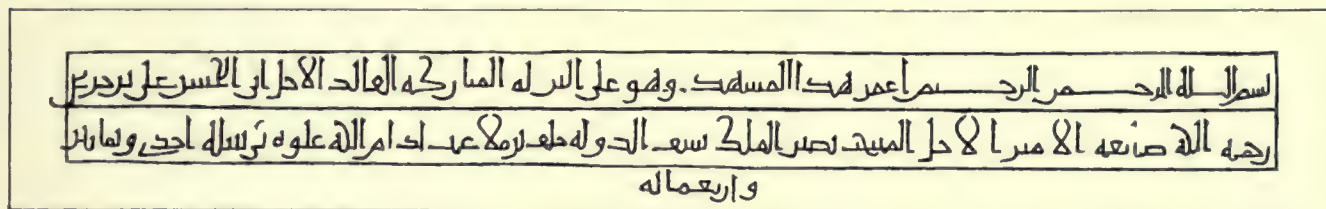 بسم الله الرحمن الرحيم اعمر هذا المشهد وهو على المباركه القائد الاجل ابى الحسن على بن جرير
رحمه الله صانعه الامير الاجل نصير الملك سيف الدوله خلف بن ملاعب ادام الله علوه في سنه احدى وثمانين
واربعمائه